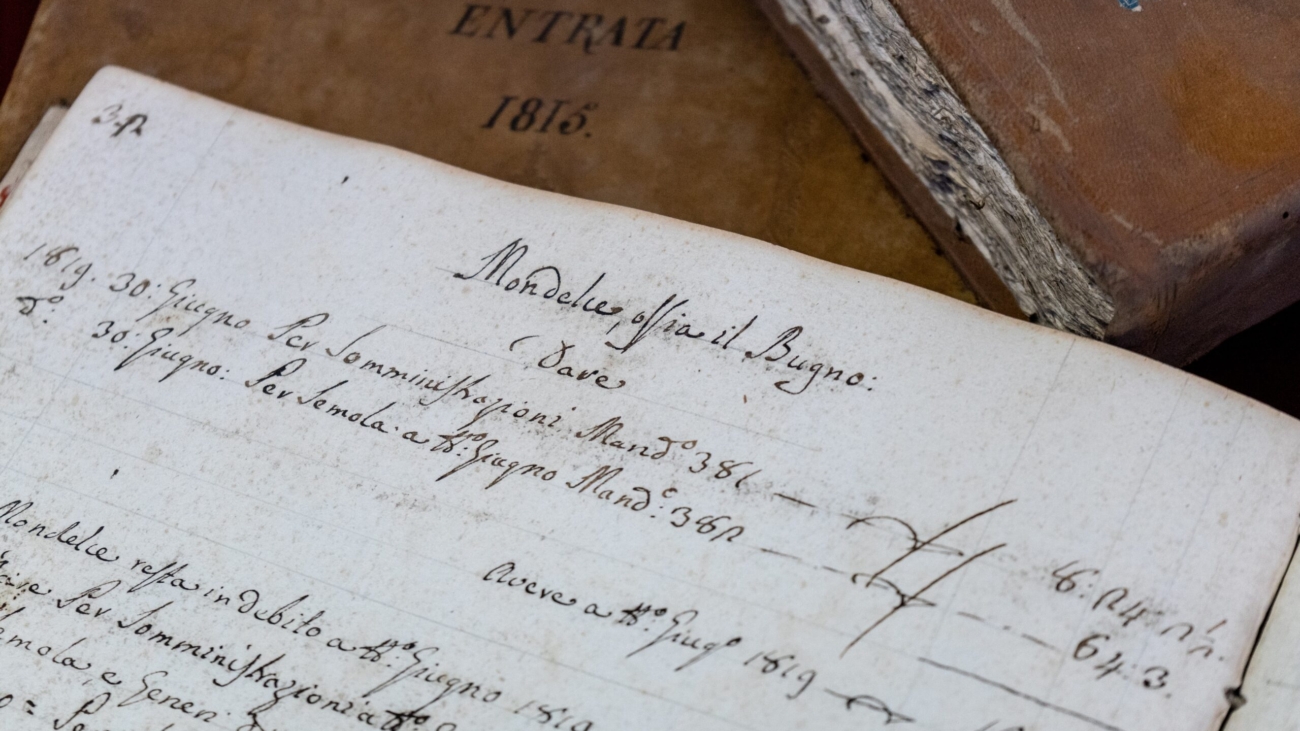 ENTRATA
1815.
Mondelce, ossia il Bugno:
Dare
1819. 30: Giugno Per Somministrazioni Mand.º 381
dº. 30: Giugno: Per Semola a tt.º Giugno Mand.º: 382
64: 3.
Avere a tt.º Giugº 1819
Mondelce resta in debito a tt.º: Giugno 1819
Per Somministrazioni a tt.º:
e Generi